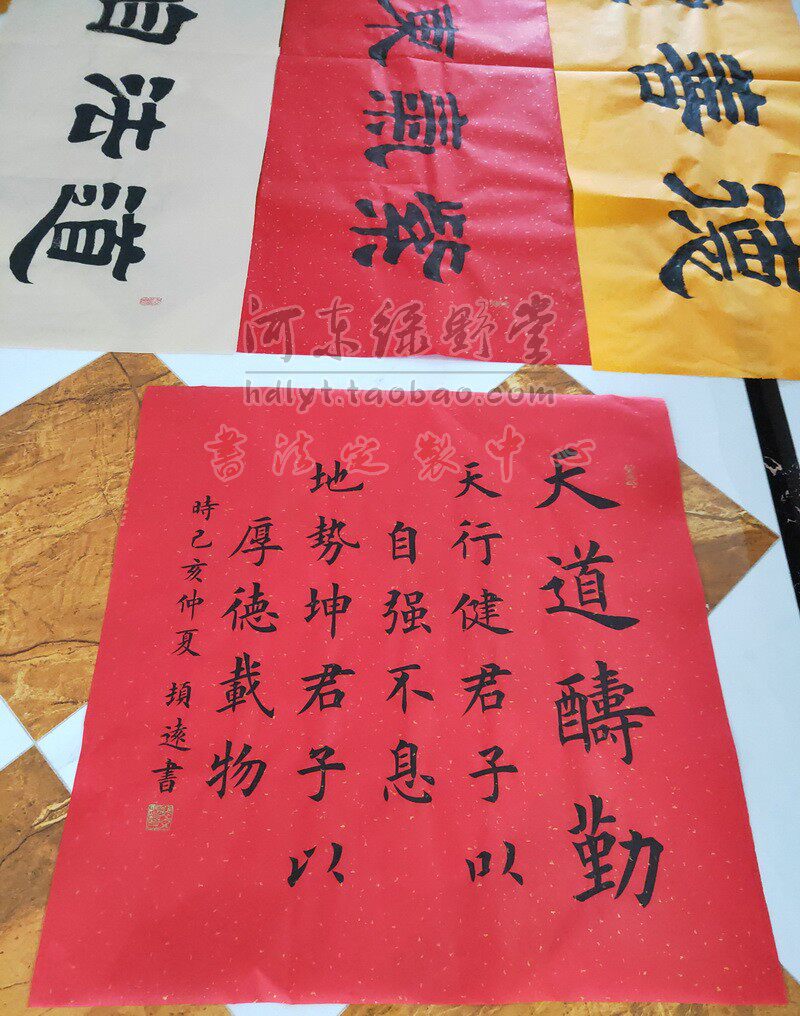 道法自
紫氣東
德善
河东绿野堂
hdlyt.taobao.com
書法定製中心
天道醻勤
天行健君子以
自强不息
地势坤君子以
厚德載物
時己亥仲夏 遠書